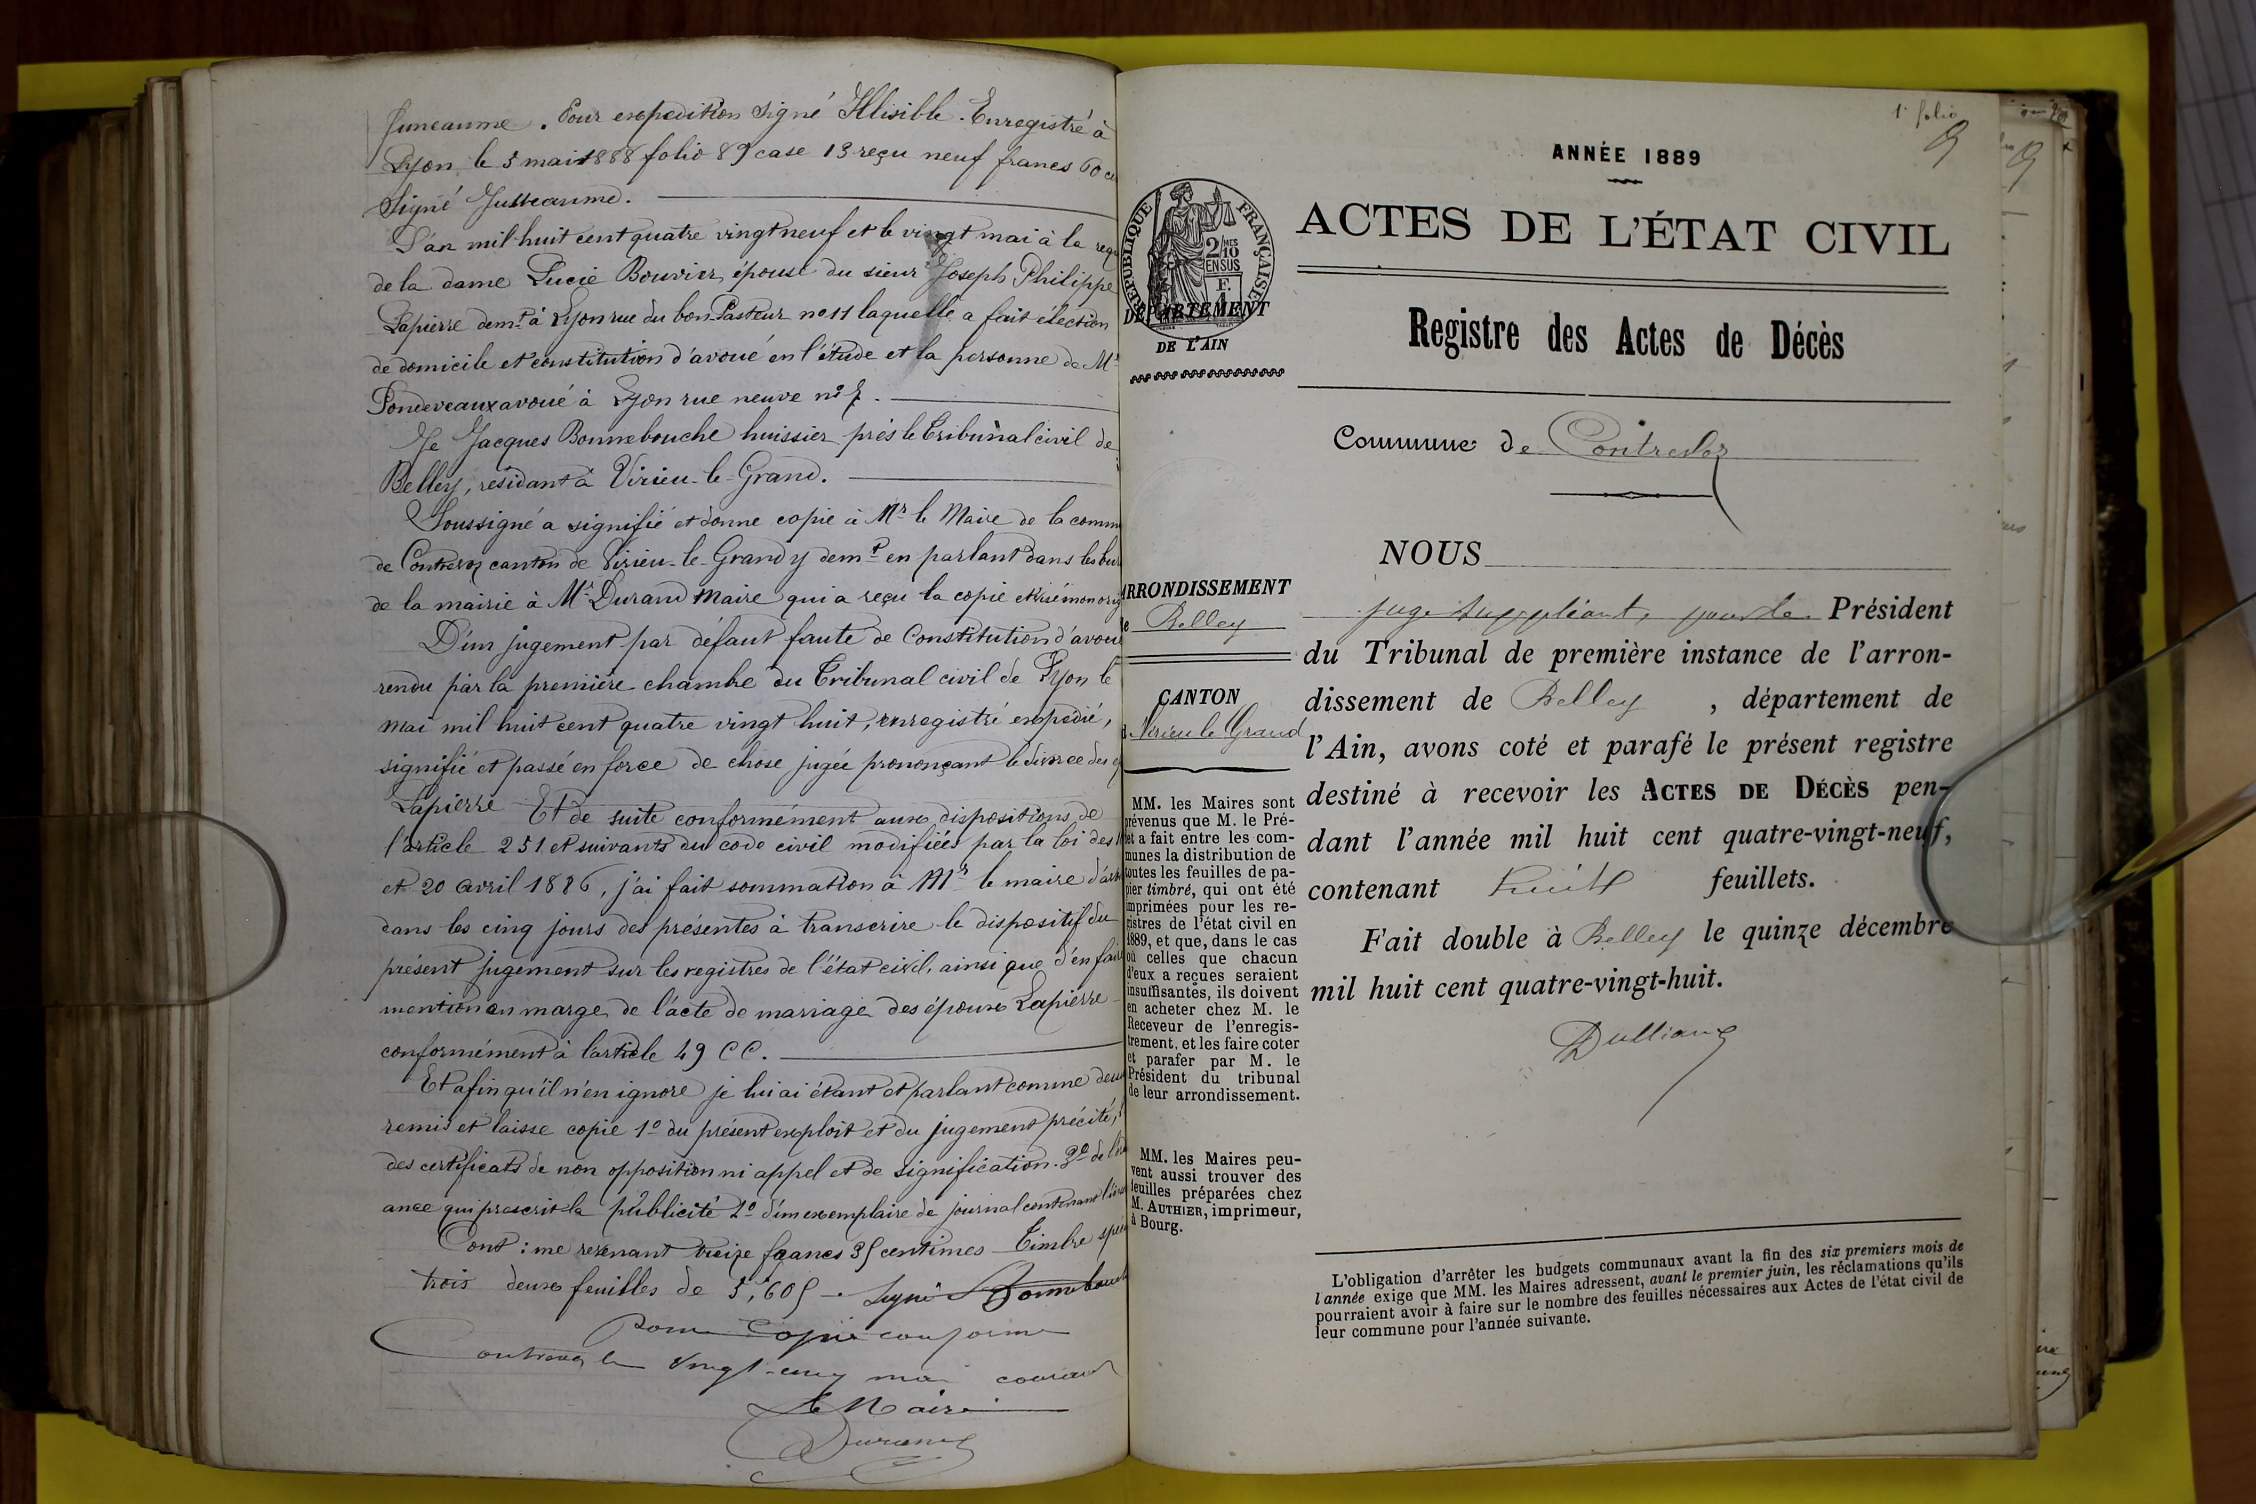 Juneaume. Pour expedition signé Illisible. Enregistré à
Lyon, le 5 mai 1888 folio 89 case 13 reçu neuf francs 60
Signé Jusseaume.
L'an mil huit cent quatre vingt neuf et le vingt mai à la
de la dame Lucie Bouvier, épouse du sieur Joseph Philippe
Lapierre demt à Lyon rue du bon Pasteur no 11 laquelle a fait élection
de domicile et constitution d'avoué en l'étude et la personne de Me
Pondeveaux avoué à Lyon rue neuve no 7.
Je Jacques Bonnebouche huissier près le Tribunal civil de
Belley, résidant à Virieu-le-Grand.
Soussigné a signifié et donne copie à Mr le Maire de la comm
de Contrevoz canton de Virieu-le-Grand y demt en parlant dans les bur
de la mairie à Mr Durand Maire qui a reçu la copie et visé mon orig
D'un jugement par défaut faute de Constitution d'avoué
rendu par la première chambre du Tribunal civil de Lyon le
mai mil huit cent quatre vingt huit, enregistré expédié,
signifié et passé en force de chose jugée prononçant le divorce des
Lapierre Et de suite conformément aux dispositions de
l'article 251 et suivants du code civil modifiées par la loi des
et 20 avril 1886, j'ai fait sommation à Mr le maire
dans les cinq jours des présentes à transcrire le dispositif du
présent jugement sur les registres de l'état civil, ainsi que d'en faire
mention en marge de l'acte de mariage des époux Lapierre
conformément à l'article 49 CC.
Et afin qu'il n'en ignore je lui ai étant et parlant comme
remis et laisse copie 1o du présent exploit et du jugement précité,
des certificats de non opposition ni appel et de signification. 3o de
ance qui prescrit la publicité 4o d'un exemplaire de journal contenant
Cout : me revenant treize francs 35 centimes Timbre
trois deux feuilles de Signé Bonnebouche
Pour Copie conforme
Contrevoz le vingt-cinq mai courant
Le Maire
Durand
1er folio
ANNÉE 1889
ACTES DE L'ÉTAT CIVIL
RÉPUBLIQUE FRANÇAISE
2/10MES
EN SUS
F.
DÉPARTEMENT
DE L'AIN
Registre des Actes de Décès
Commune de Contrevoz
NOUS
juge suppléant, pour le Président
du Tribunal de première instance de l'arron-
dissement de Belley , département de
l'Ain, avons coté et parafé le présent registre
destiné à recevoir les ACTES DE DÉCÈS pen-
dant l'année mil huit cent quatre-vingt-neuf,
contenant huit feuillets.
Fait double à Belley le quinze décembre
mil huit cent quatre-vingt-huit.
ARRONDISSEMENT
de Belley
CANTON
d Virieu le Grand
MM. les Maires sont
prévenus que M. le Pré-
fet a fait entre les com-
munes la distribution de
toutes les feuilles de pa-
pier timbré, qui ont été
imprimées pour les re-
gistres de l'état civil en
1889, et que, dans le cas
où celles que chacun
d'eux a reçues seraient
insuffisantes, ils doivent
en acheter chez M. le
Receveur de l'enregis-
trement, et les faire coter
et parafer par M. le
Président du tribunal
de leur arrondissement.
MM. les Maires peu-
vent aussi trouver des
feuilles préparées chez
M. AUTHIER, imprimeur,
à Bourg.
L'obligation d'arrêter les budgets communaux avant la fin des six premiers mois de
l'année exige que MM. les Maires adressent, avant le premier juin, les réclamations qu'ils
pourraient avoir à faire sur le nombre des feuilles nécessaires aux Actes de l'état civil de
leur commune pour l'année suivante.